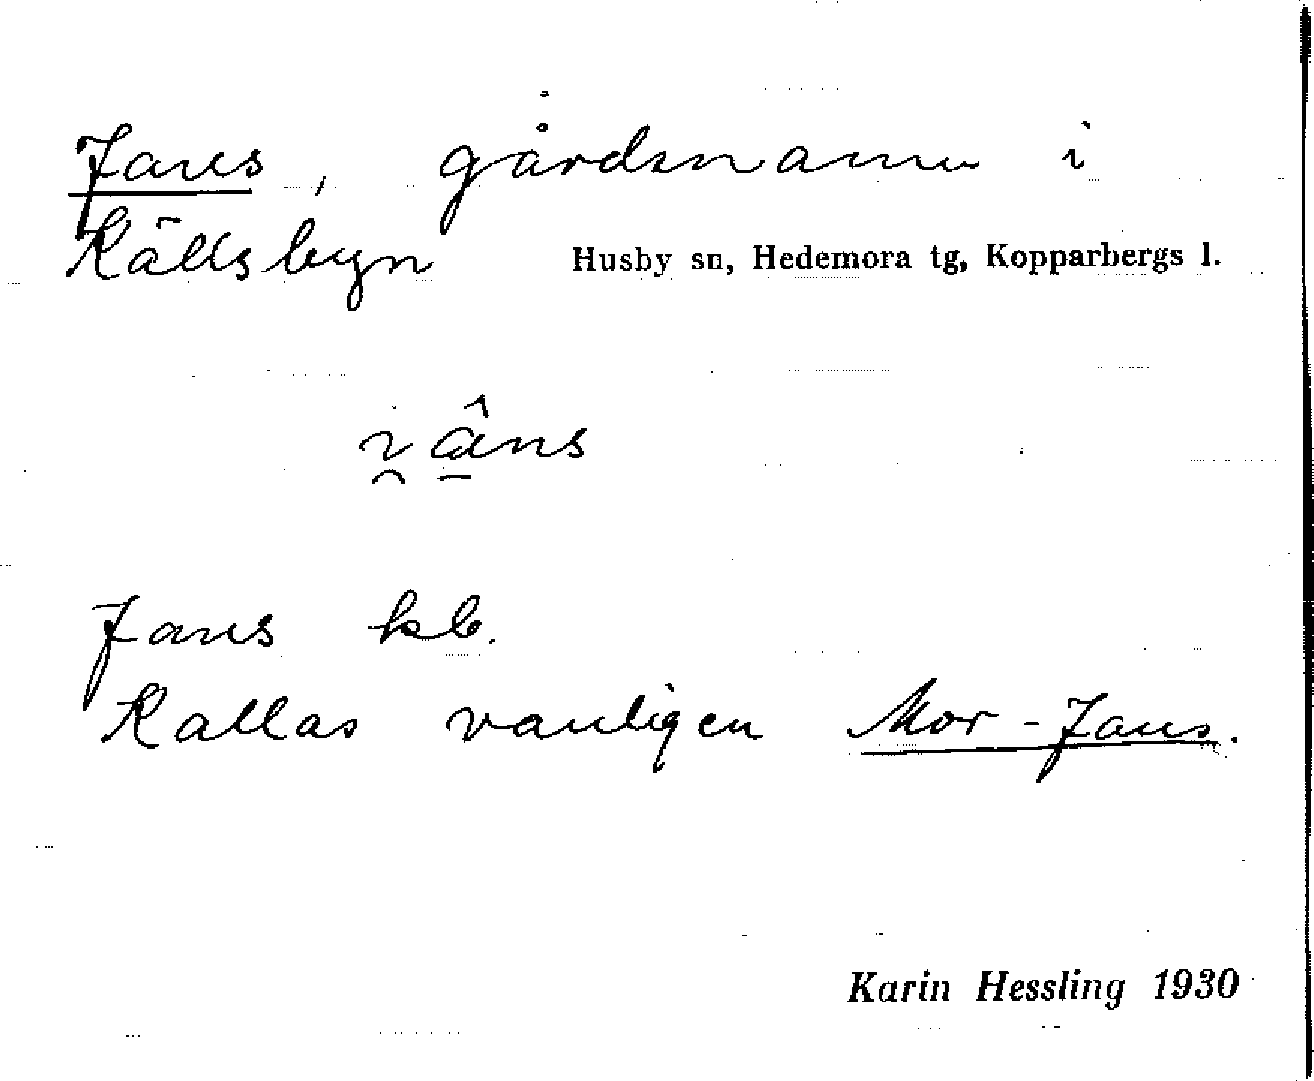 Jans, gårdsnamn i
Källsbyn Husby sn, Hedemora tg, Kopparbergs l.
Jans kb.
Kallas vanligen Mor-Jans.
Karin Hessling 1930